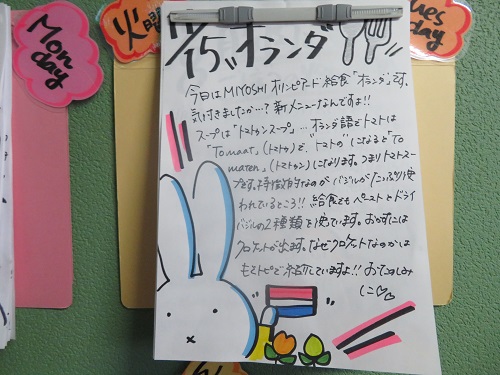 Mon
day
火曜
Tues
day
7/15, オランダ
今日はMIYOSHI オリンピアード給食「オランダ」です。
気付きましたか…? 新メニューなんですよ!!
スープは「トマトゥンスープ」… オランダ語でトマトは
「Tomaat」(トマト)で、“トマトの”になると「To
maten」(トマトゥン)になります。つまりトマトスー
プです。特徴的なのが バジルがたっぷり使
われているところ!! 給食でもペーストとドライ
バジルの2種類を使ています。おかずには
クロケットが出ます。なぜクロケットなのかは
もてトピで紹介していますよ!! おたのしみ
に♡♡